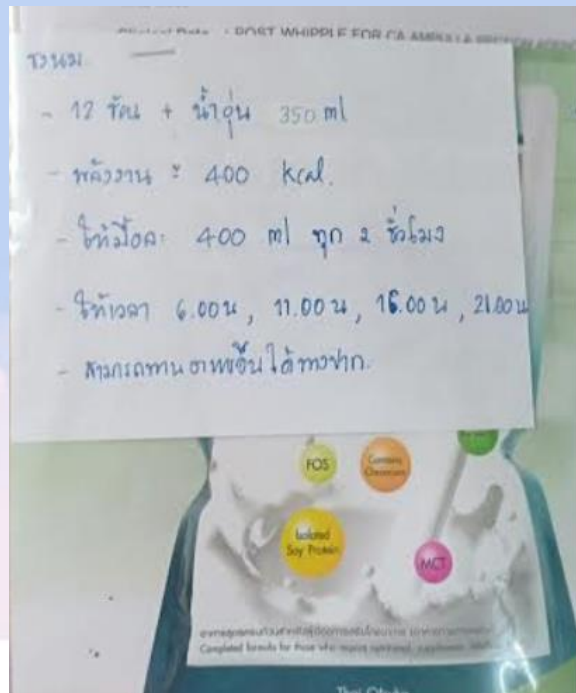 POST WHIPPLE FOR CA AMPULLA
ชงนม
- 12 ช้อน + น้ำอุ่น 350 ml
- พลังงาน = 400 kcal.
- ให้มื้อละ 400 ml ทุก 2 ชั่วโมง
- ให้เวลา 6.00 น, 11.00 น, 16.00 น, 21.00 น
- สามารถทานอาหารอื่นได้ทางปาก.
FOS
Contains
Isolated
Soy Protein
MCT
Completed formula for those who require nutritional